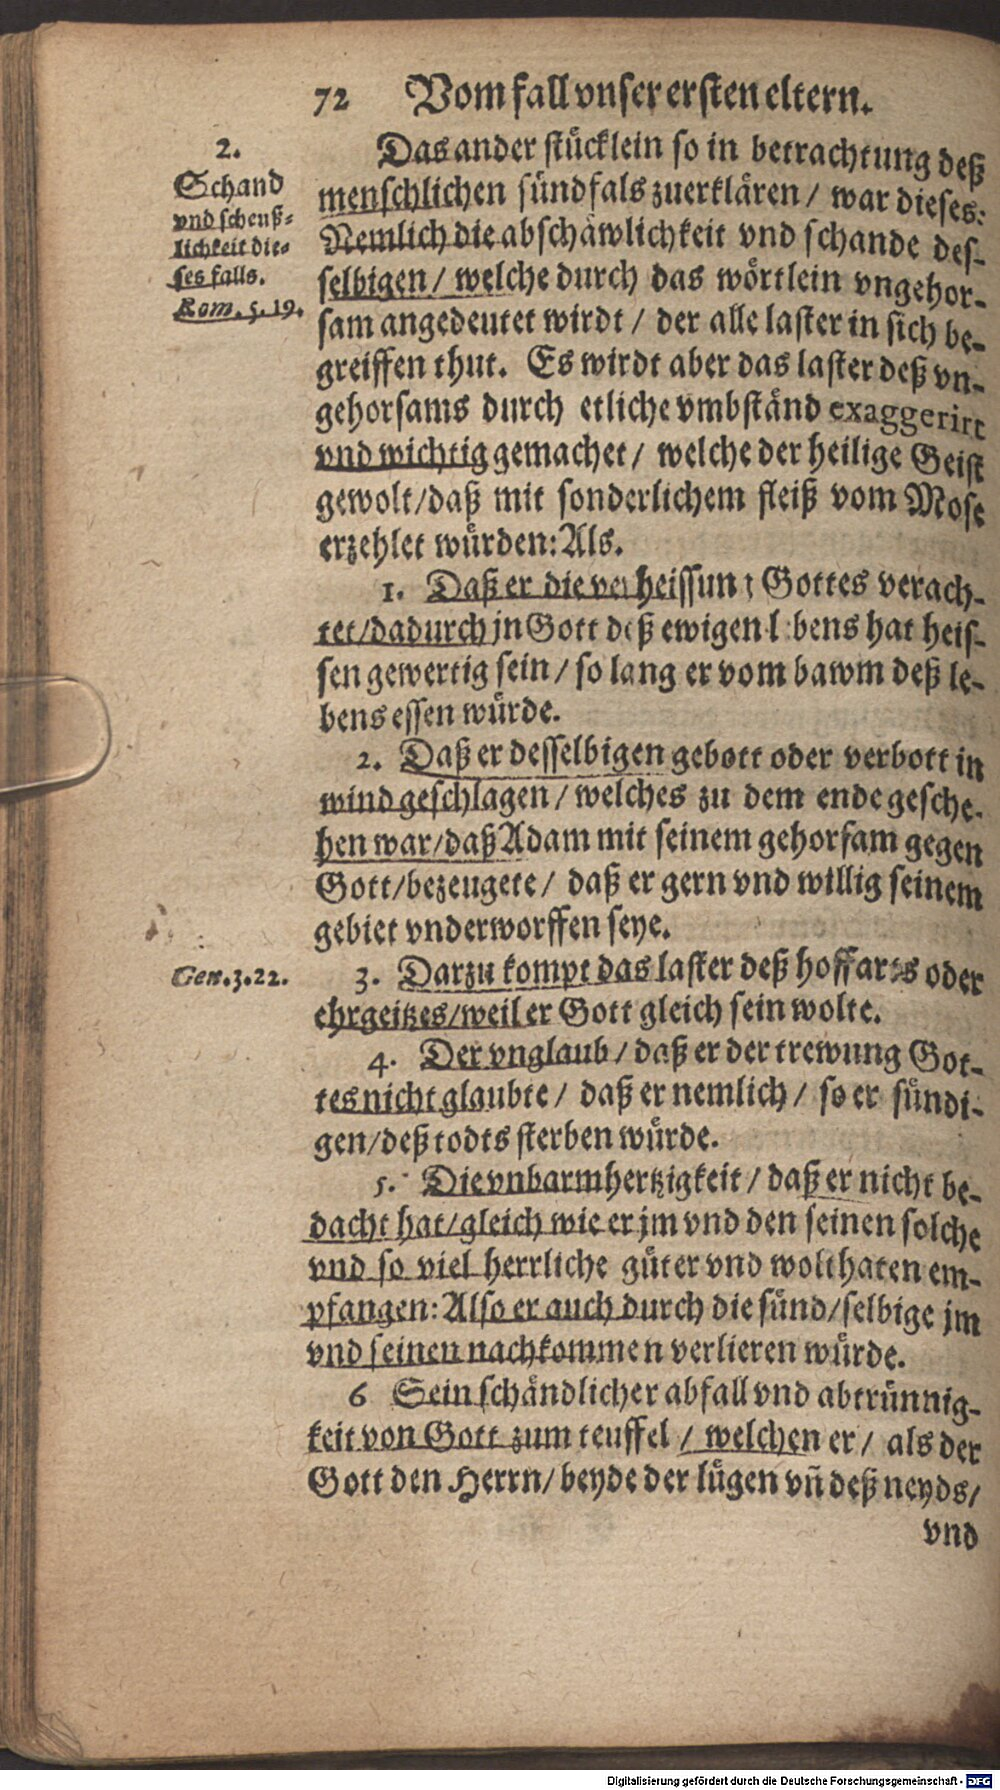 72 Vom fall vnser ersten eltern.
2.
Schand
vnd scheuß-
lichkeit die-
ses falls.
Rom. 5. 19.
Das ander stücklein so in betrachtung deß
menschlichen sündfals zuerklären / war dieses:
Nemlich die abschäwlichkeit vnd schande des-
selbigen / welche durch das wörtlein vngehor-
sam angedeutet wirdt / der alle laster in sich be-
greiffen thut. Es wirdt aber das laster deß vn-
gehorsams durch etliche vmbständ exaggerirt
vnd wichtig gemachet / welche der heilige Geist
gewolt / daß mit sonderlichem fleiß vom Mose
erzehlet würden: Als.
1. Daß er die verheissung Gottes verach-
tet / dadurch jn Gott deß ewigen lebens hat heis-
sen gewertig sein / so lang er vom bawm deß le-
bens essen würde.
2. Daß er desselbigen gebott oder verbott in
wind geschlagen / welches zu dem ende gesche-
hen war / daß Adam mit seinem gehorsam gegen
Gott / bezeugete / daß er gern vnd willig seinem
gebiet vnderworffen seye.
Gen. 3. 22.
3. Darzu kompt das laster deß hoffarts oder
ehrgeitzes / weil er Gott gleich sein wolte.
4. Der vnglaub / daß er der trewung Got-
tes nicht glaubte / daß er nemlich / so er sündi-
gen / deß todts sterben würde.
5. Die vnbarmhertzigkeit / daß er nicht be-
dacht hat / gleich wie er jm vnd den seinen solche
vnd so viel herrliche güter vnd wolthaten em-
pfangen: Also er auch durch die sünd / selbige jm
vnd seinen nachkommen verlieren würde.
6 Sein schändlicher abfall vnd abtrünnig-
keit von Gott zum teuffel / welchen er / als der
Gott den Herrn / beyde der lügen vn̄ deß neyds /
vnd
Digitalisierung gefördert durch die Deutsche Forschungsgemeinschaft - DFG